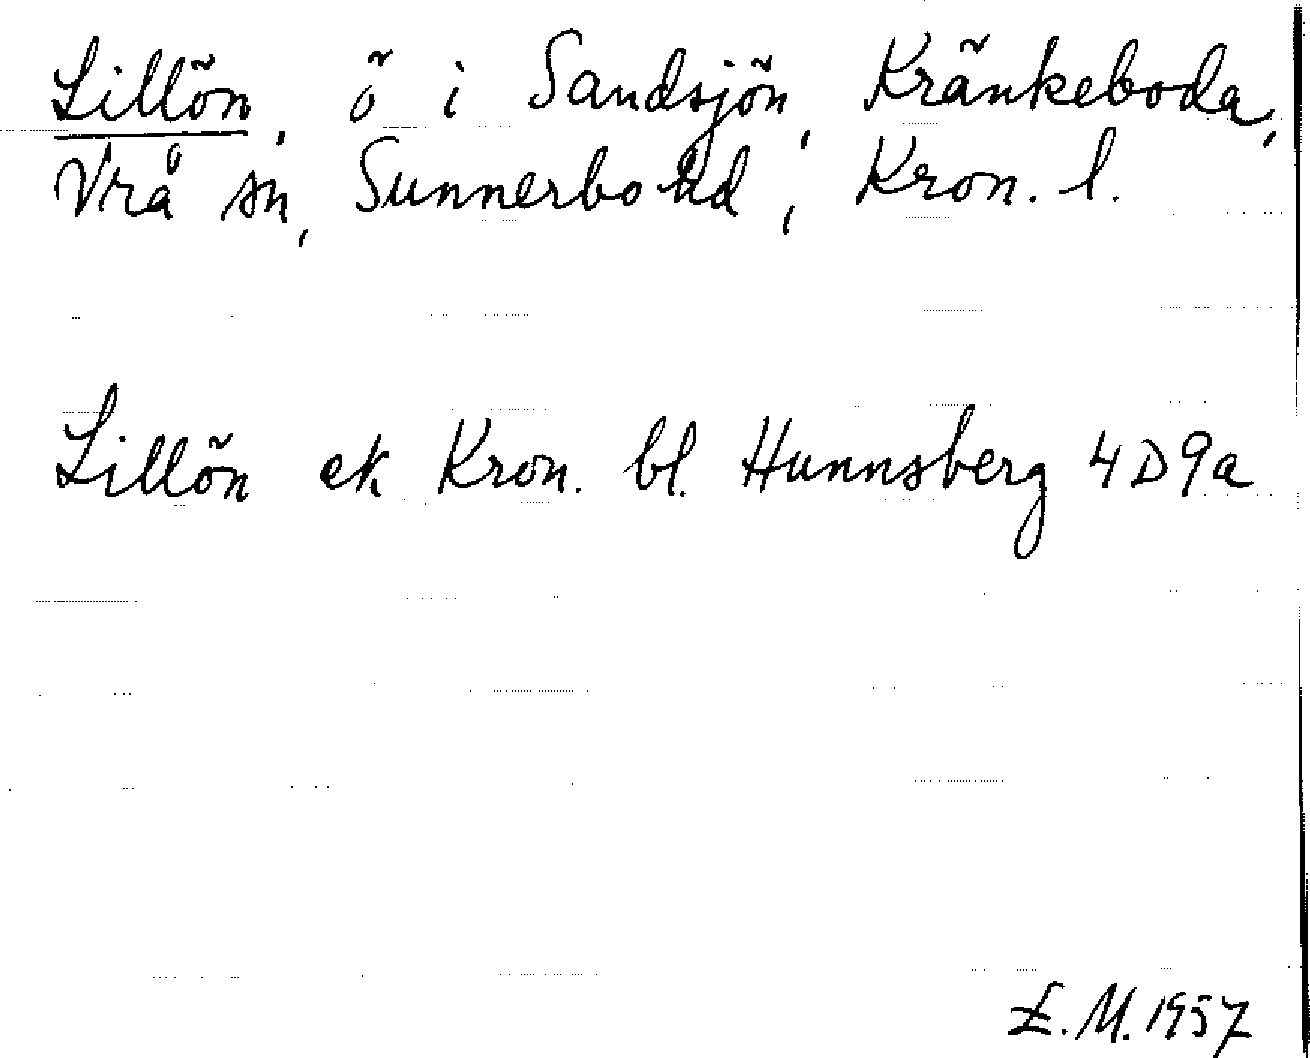 Lillön, ö i Sandsjön, Kränkeboda,
Vrå sn, Sunnerbo hd, Kron. l.
Lillön ek Kron. bl. Hunnsberg 4D9a
E. M. 1957